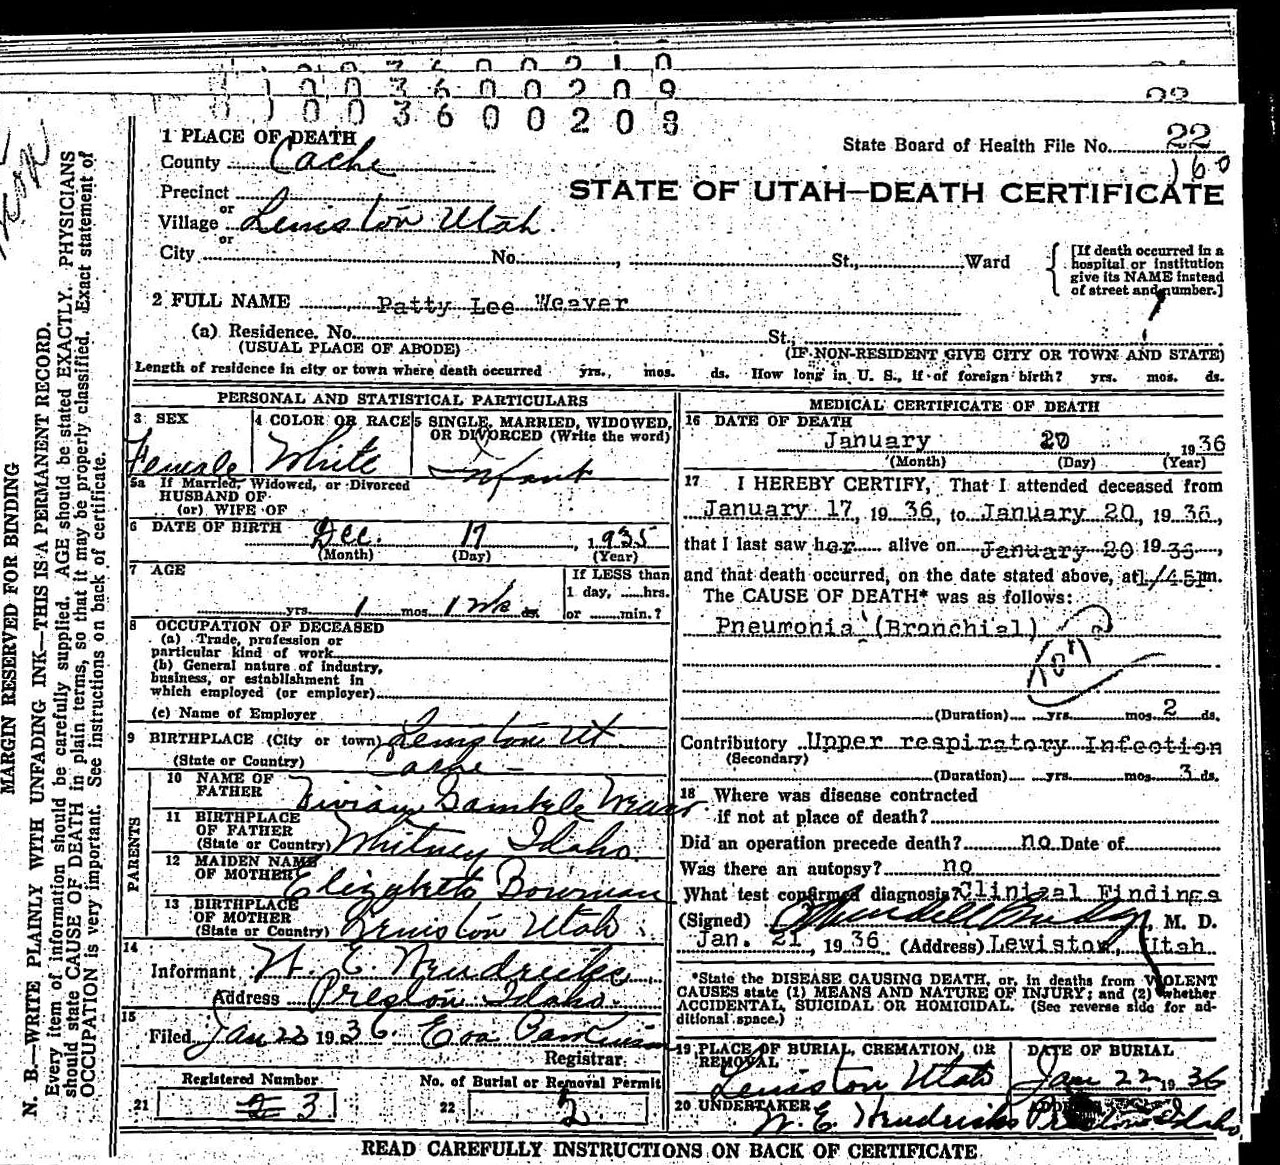 0 1 0 0 3 6 0 0 2 1 0
0 1 0 0 3 6 0 0 2 0 9
0 1 0 0 3 6 0 0 2 0 8
22
State Board of Health File No. 22
160
STATE OF UTAH—DEATH CERTIFICATE
1 PLACE OF DEATH
County Cache
Precinct
or
Village Lewiston Utah.
or
City No. , St., Ward
[If death occurred in a hospital or institution give its NAME instead of street and number.]
2 FULL NAME Patty Lee Weaver
(a) Residence. No. St.,
(USUAL PLACE OF ABODE) (IF NON-RESIDENT GIVE CITY OR TOWN AND STATE)
Length of residence in city or town where death occurred yrs. mos. ds. How long in U. S., if of foreign birth? yrs. mos. ds.
PERSONAL AND STATISTICAL PARTICULARS
3 SEX Female
4 COLOR OR RACE White
5 SINGLE, MARRIED, WIDOWED, OR DIVORCED (Write the word) Infant
5a If Married, Widowed, or Divorced
HUSBAND OF
(or) WIFE OF
6 DATE OF BIRTH Dec. 17, 1935
(Month) (Day) (Year)
7 AGE
If LESS than
1 day, hrs.
or min.?
yrs. 1 mos. 1 wk ds.
8 OCCUPATION OF DECEASED
(a) Trade, profession or
particular kind of work
(b) General nature of industry,
business, or establishment in
which employed (or employer)
(c) Name of Employer
9 BIRTHPLACE (City or town) Lewiston Ut
(State or Country) Cache
PARENTS
10 NAME OF FATHER Vivian Gambele Weaver
11 BIRTHPLACE OF FATHER
(State or Country) Whitney Idaho.
12 MAIDEN NAME OF MOTHER Elizabeth Bowman
13 BIRTHPLACE OF MOTHER
(State or Country) Lewiston Utah
14
Informant W. E. Hendricks
Address Preston Idaho.
15
Filed Jan 23 1936. Eva Parkinson
Registrar
Registered Number
21 2 3
No. of Burial or Removal Permit
22 2
MEDICAL CERTIFICATE OF DEATH
16 DATE OF DEATH
January 20 1936
(Month) (Day) (Year)
17 I HEREBY CERTIFY, That I attended deceased from
January 17, 1936, to January 20, 1936,
that I last saw her alive on January 20 1936,
and that death occurred, on the date stated above, at 1/45Pm.
The CAUSE OF DEATH* was as follows:
Pneumonia (Bronchial)
107
(Duration) yrs. mos. 2 ds.
Contributory Upper respiratory Infection
(Secondary)
(Duration) yrs. mos. 3 ds.
18 Where was disease contracted
if not at place of death?
Did an operation precede death? no Date of
Was there an autopsy? no
What test confirmed diagnosis? Clinical Findings
(Signed) , M. D.
Jan. 21, 1936 (Address) Lewiston, Utah
*State the DISEASE CAUSING DEATH, or, in deaths from VIOLENT
CAUSES state (1) MEANS AND NATURE OF INJURY; and (2) whether
ACCIDENTAL, SUICIDAL OR HOMICIDAL. (See reverse side for ad-
ditional space.)
19 PLACE OF BURIAL, CREMATION, OR REMOVAL Lewiston Utah
DATE OF BURIAL Jan 22 1936
20 UNDERTAKER W. E. Hendricks
ADDRESS Preston Idaho
READ CAREFULLY INSTRUCTIONS ON BACK OF CERTIFICATE
MARGIN RESERVED FOR BINDING
N. B.—WRITE PLAINLY WITH UNFADING INK—THIS IS A PERMANENT RECORD.
Every item of information should be carefully supplied. AGE should be stated EXACTLY. PHYSICIANS
should state CAUSE OF DEATH in plain terms, so that it may be properly classified. Exact statement of
OCCUPATION is very important. See instructions on back of certificate.